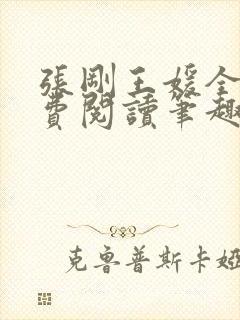 張剛王媛全
費閱讀筆趣
克魯普斯卡婭